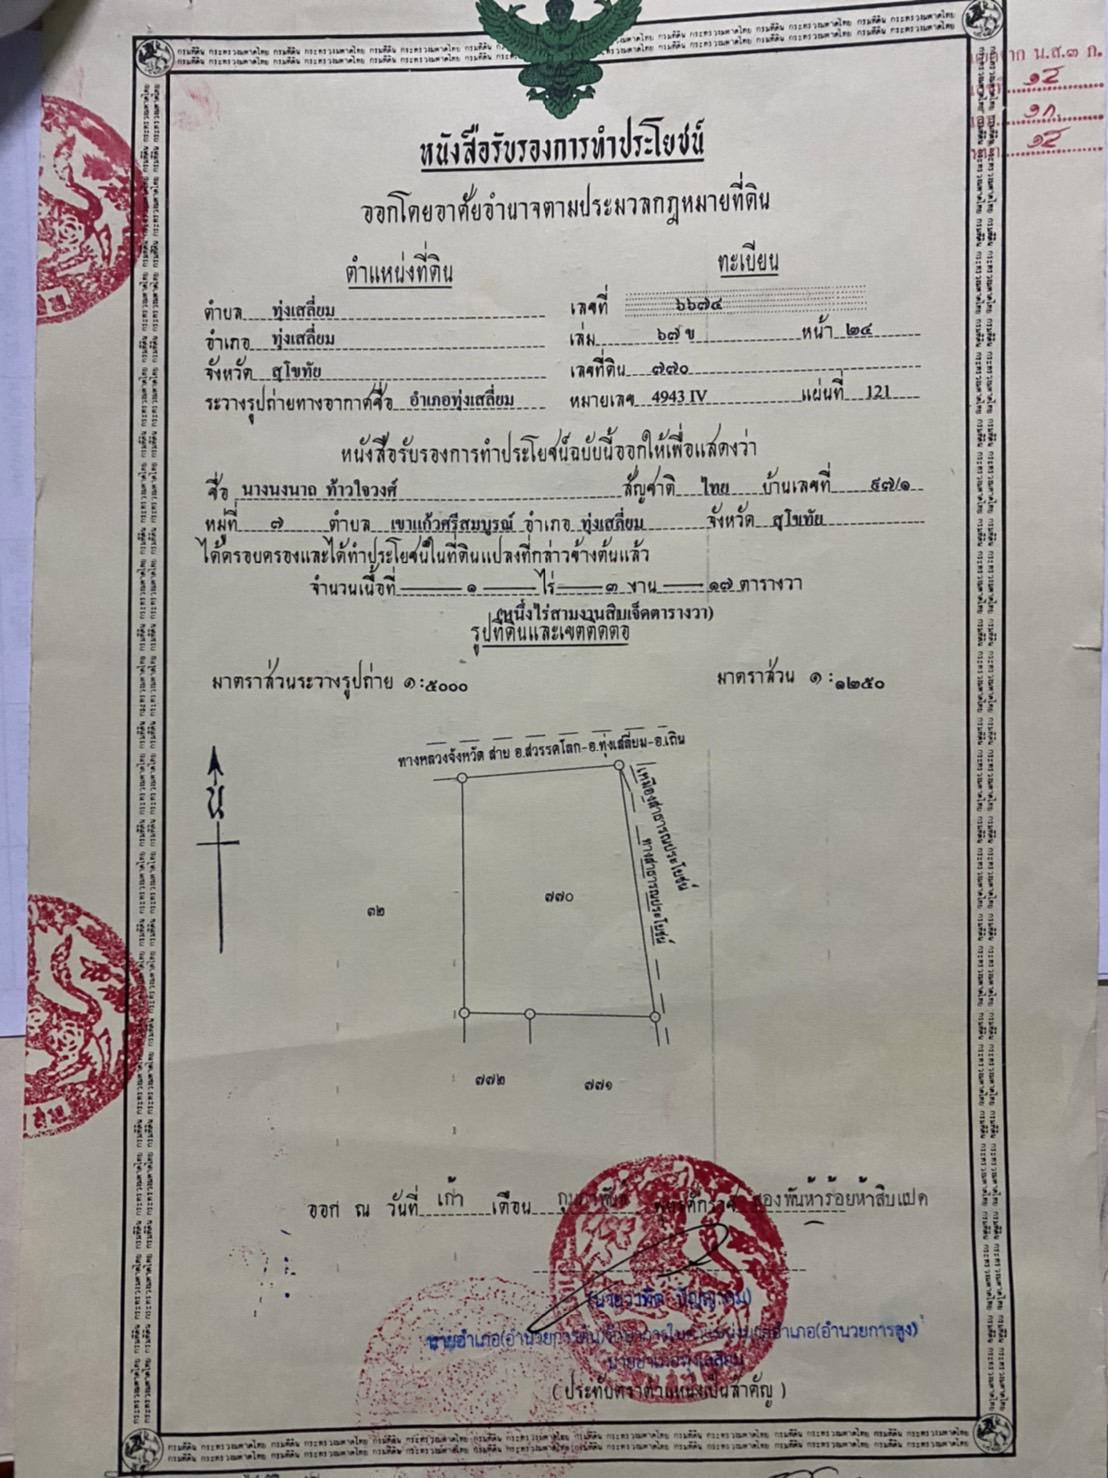 หนังสือรับรองการทำประโยชน์
ออกโดยอาศัยอำนาจตามประมวลกฎหมายที่ดิน
ตำแหน่งที่ดิน ทะเบียน
ตำบล ทุ่งเสลี่ยม เลขที่ ๖๖๗๔
อำเภอ ทุ่งเสลี่ยม เล่ม ๖๗ ข หน้า ๒๔
จังหวัด สุโขทัย เลขที่ดิน ๗๗๐
ระวางรูปถ่ายทางอากาศชื่อ อำเภอทุ่งเสลี่ยม หมายเลข 4943 IV แผ่นที่ 121
หนังสือรับรองการทำประโยชน์ฉบับนี้ออกให้เพื่อแสดงว่า
ชื่อ นางนงนาถ ท้าวใจวงศ์ สัญชาติ ไทย บ้านเลขที่ ๙๗/๑
หมู่ที่ ๗ ตำบล เขาแก้วศรีสมบูรณ์ อำเภอ ทุ่งเสลี่ยม จังหวัด สุโขทัย
ได้ครอบครองและได้ทำประโยชน์ในที่ดินแปลงที่กล่าวข้างต้นแล้ว
จำนวนเนื้อที่ ๑ ไร่ ๓ งาน ๑๗ ตารางวา
(หนึ่งไร่สามงานสิบเจ็ดตารางวา)
รูปที่ดินและเขตติดต่อ
มาตราส่วนระวางรูปถ่าย ๑:๕๐๐๐ มาตราส่วน ๑:๑๒๕๐
ทางหลวงจังหวัด สาย อ.สวรรคโลก-อ.ทุ่งเสลี่ยม-อ.เถิน
เหมืองสาธารณประโยชน์
ทางสาธารณประโยชน์
น
๓๒
๗๗๐
๗๗๒
๗๗๑
ออก ณ วันที่ เก้า เดือน กุมภาพันธ์ พุทธศักราช สองพันห้าร้อยห้าสิบแปด
(ประทับตราตำแหน่งเป็นสำคัญ)